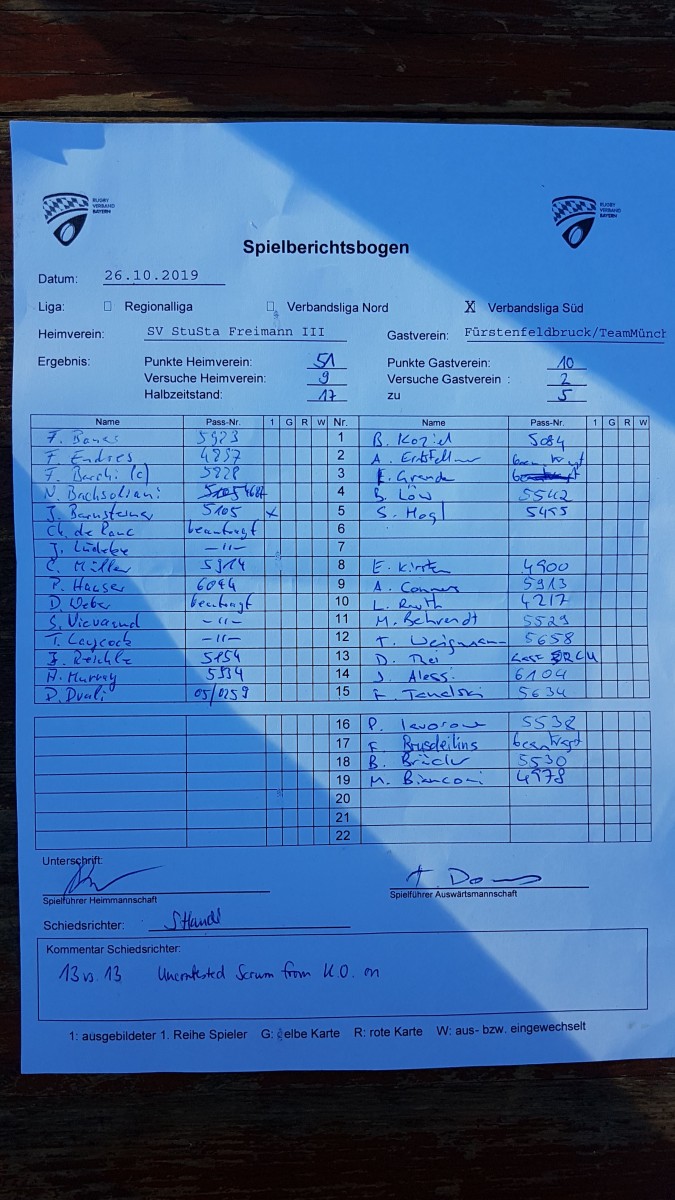 RUGBY VERBAND BAYERN RUGBY VERBAND BAYERN
Spielberichtsbogen
Datum: 26.10.2019
Liga: Regionalliga Verbandsliga Nord X Verbandsliga Süd
Heimverein: SV StuSta Freimann III Gastverein: Fürstenfeldbruck/TeamMünch
Ergebnis: Punkte Heimverein: 51 Punkte Gastverein: 10
Versuche Heimverein: 9 Versuche Gastverein : 2
Halbzeitstand: 17 zu 5
Name Pass-Nr. 1 G R W Nr. Name Pass-Nr. 1 G R W
F. 5923 1 B. Koziel 5084
F. Endres 4297 2 A.
F. (c) 5828 3 Grande
N. Bachsoliani 4 B. Löw 5542
J. 5105 x 5 S. Hogl 5455
Ch. de Panc beantragt 6
J. Lüdeke -"- 7
C. Müller 5914 8 E. Kirsten 4900
P. Hauser 6044 9 A. Conners 5913
D. Weber beantragt 10 L. 4217
S. -"- 11 M. Behrendt 5529
T. Laycock -"- 12 T. 5658
J. Reichle 5154 13 D.
A. Murray 5534 14 J. Alessi 6104
D. Dvali 05/0259 15 F. 5634
16 P. 5538
17 F. beantragt
18 B. 5530
19 M. Bianconi 4978
20
21
22
Unterschrift:
Spielführer Heimmannschaft Spielführer Auswärtsmannschaft
Schiedsrichter:
Kommentar Schiedsrichter:
13 vs. 13 Uncontested Scrum from K.O. on
1: ausgebildeter 1. Reihe Spieler G: gelbe Karte R: rote Karte W: aus- bzw. eingewechselt